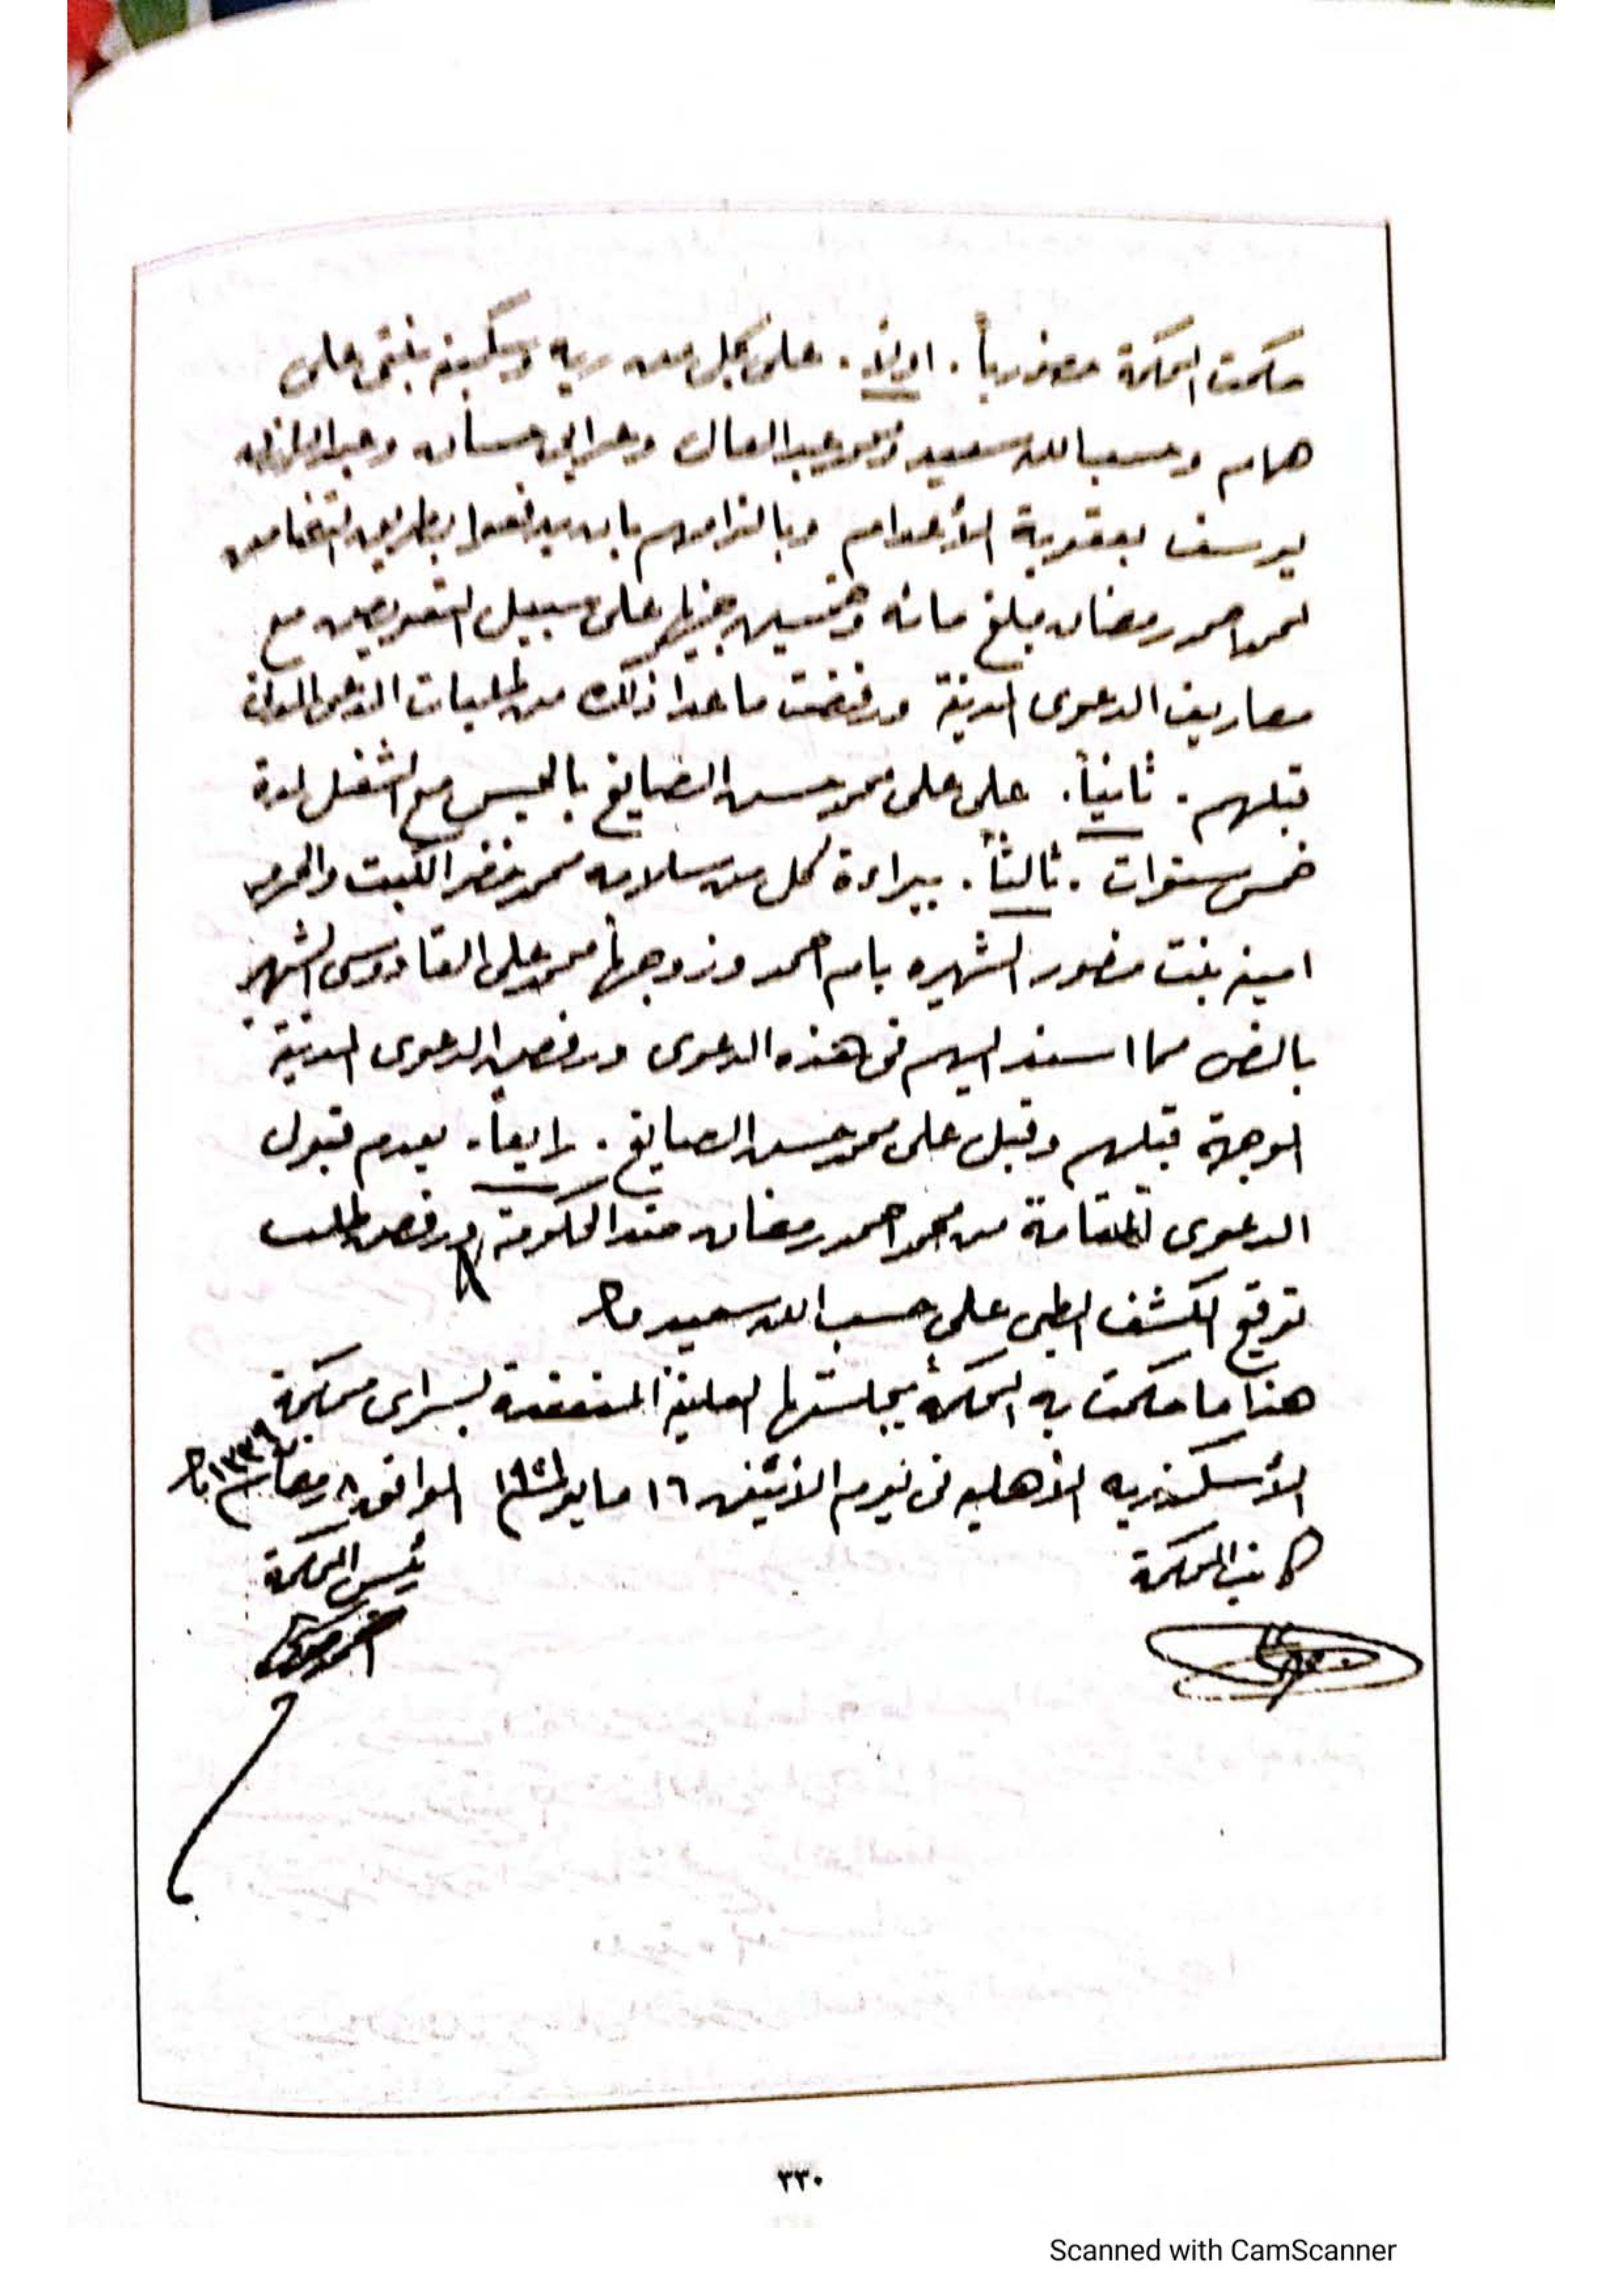 حكمت المحكمة حضورياً. اولاً. على كل من ريه وسكينه بنتى على
همام وحسب الله سعيد ومحمد عبد العال وعرابى حسان وعبد الرازق
يوسف بعقوبة الأعدام وبالزامهم بان يدفعوا بطريق التضامن
لمحمد احمد رمضان مبلغ مائه وخمسين جنيها على سبيل التعويض مع
مصاريف الدعوى المدنية ورفضت ماعدا ذلك من طلبات المدعى المدنى
قبلهم. ثانياً. على على محمد حسن الصايغ بالحبس مع الشغل لمدة
خمس سنوات. ثالثاً. ببراءة كل من سلامه محمد خضر الكبت والحرمه
امينه بنت منصور الشهيره بام احمد وزوجها محمد على القادوسى الشهير
بالنص مما اسند اليهم فى هذه الدعوى ورفض الدعوى المدنية
الموجهة قبلهم وقبل على محمد حسن الصايغ. رابعاً. بعدم قبول
الدعوى المقامة من محمد احمد رمضان ضد الحكومة ورفض طلب
توقيع الكشف الطبى على حسب الله سعيد
هذا ما حكمت به المحكمة بجلستها العلنية المنعقدة بسراى محكمة
الأسكندريه الأهليه فى يوم الاثنين ١٦ مايو سنة ١٩٢١ الموافق ٨ رمضان سنة ١٣٣٩
كاتب المحكمة
رئيس المحكمة
٣٣٠
Scanned with CamScanner